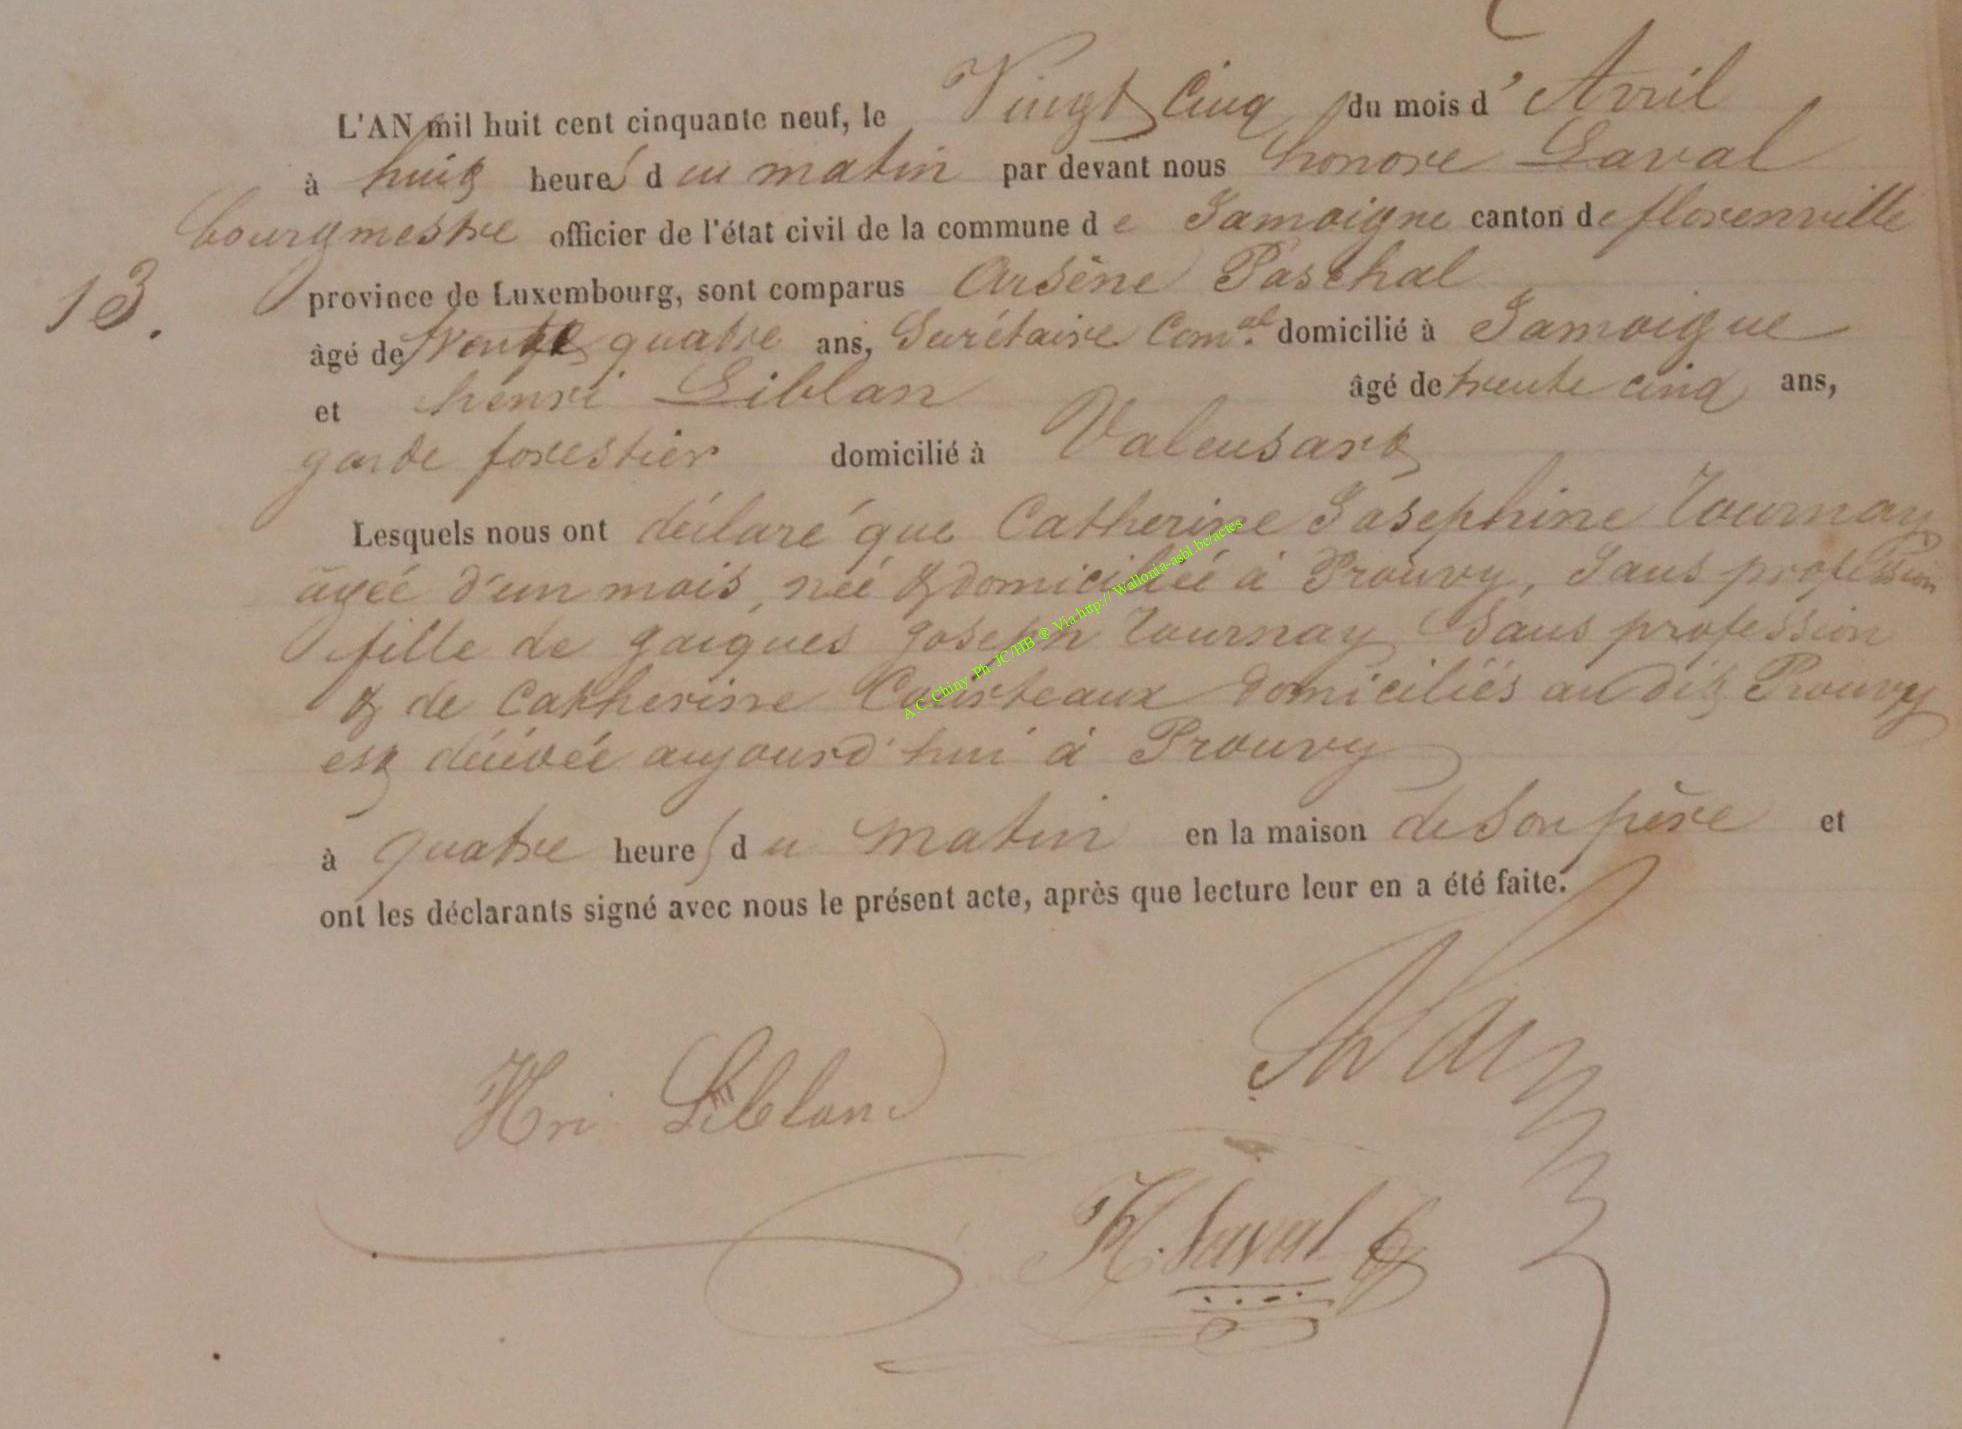 L'AN mil huit cent cinquante neuf, le Vingt Cinq du mois d'Avril
à huit heures du matin par devant nous honoré Laval
bourgmestre officier de l'état civil de la commune de Jamoigne canton de florenville
13.
province de Luxembourg, sont comparus Arsène Paschal
âgé de trente quatre ans, Secrétaire Com.al domicilié à Jamoigne
et henri Liblan âgé de trente cinq ans,
garde forestier domicilié à Valensart
Lesquels nous ont déclaré que Catherine Josephine Tournay
agée d'un mois, née & domiciliée à Prouvy, Sans profession
fille de jacques joseph Tournay Sans profession
& de Catherine Courteaux domiciliés au dit Prouvy
est décédée aujourd'hui à Prouvy
à quatre heures du matin en la maison de Son père et
ont les déclarants signé avec nous le présent acte, après que lecture leur en a été faite.
Hri Leblanc
H. Laval
A C Chiny Ph JC/HB ® Via http://Wallonia-asbl.be/actes